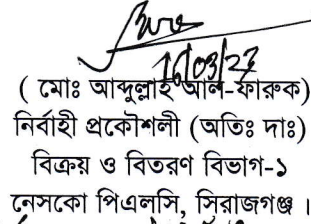 ১৬/০৩/২৩
( মোঃ আব্দুল্লাহ আল-ফারুক)
নির্বাহী প্রকৌশলী (অতিঃ দাঃ)
বিক্রয় ও বিতরণ বিভাগ-১
নেসকো পিএলসি, সিরাজগঞ্জ ।